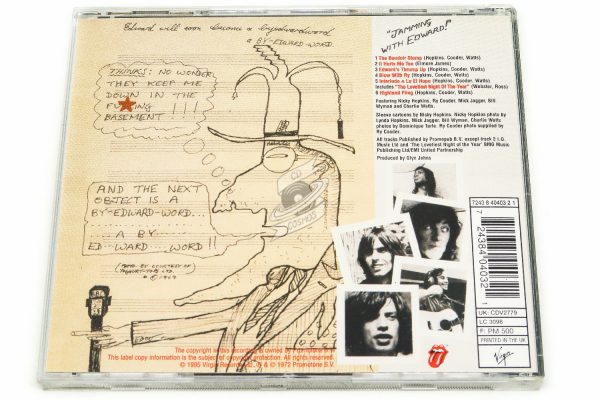 Edward will soon become a byedwardword
a BY-EDWARD-WORD
THINKS: NO WONDER
THEY KEEP ME
DOWN IN THE
FU★ING
BASEMENT!!!
AND THE NEXT
OBJECT IS A
BY-EDWARD-WORD...
...A BY
ED..WARD....WORD!!
"JAMMING
WITH EDWARD!"
1 The Boudoir Stomp (Hopkins, Cooder, Watts)
2 It Hurts Me Too (Elmore James)
3 Edward's Thrump Up (Hopkins, Cooder, Watts)
4 Blow With Ry (Hopkins, Cooder, Watts)
5 Interlude a La El Hopo (Hopkins, Cooder, Watts)
Includes "The Loveliest Night Of The Year" (Webster, Ross)
6 Highland Fling (Hopkins, Cooder, Watts)
Featuring Nicky Hopkins, Ry Cooder, Mick Jagger, Bill
Wyman and Charlie Watts
Sleeve cartoons by Nicky Hopkins. Nicky Hopkins photo by
Lynda Hopkins. Mick Jagger, Bill Wyman, Charlie Watts
photos by Dominique Tarle. Ry Cooder photo supplied by
Ry Cooder.
All tracks Published by Promopub B.V. except track 2 I.Q.
Music Ltd and 'The Loveliest Night of the Year' BMG Music
Publishing Ltd/EMI United Partnership
Produced by Glyn Johns
CD
COSMOS
7243 8 40403 2 1
7 24384 04032 1
UK: CDV2779
LC 3098
F: PM 500
PRINTED IN THE UK
Virgin
The copyright in this recording is owned by Promotone B.V.
This label copy information is the subject of copyright protection. All rights reserved.
© 1995 Virgin Records Ltd. ℗ & © 1972 Promotone B.V.